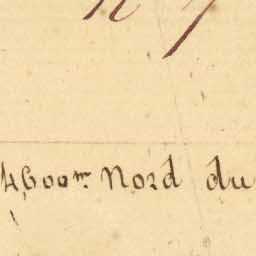 4600m. Nord du